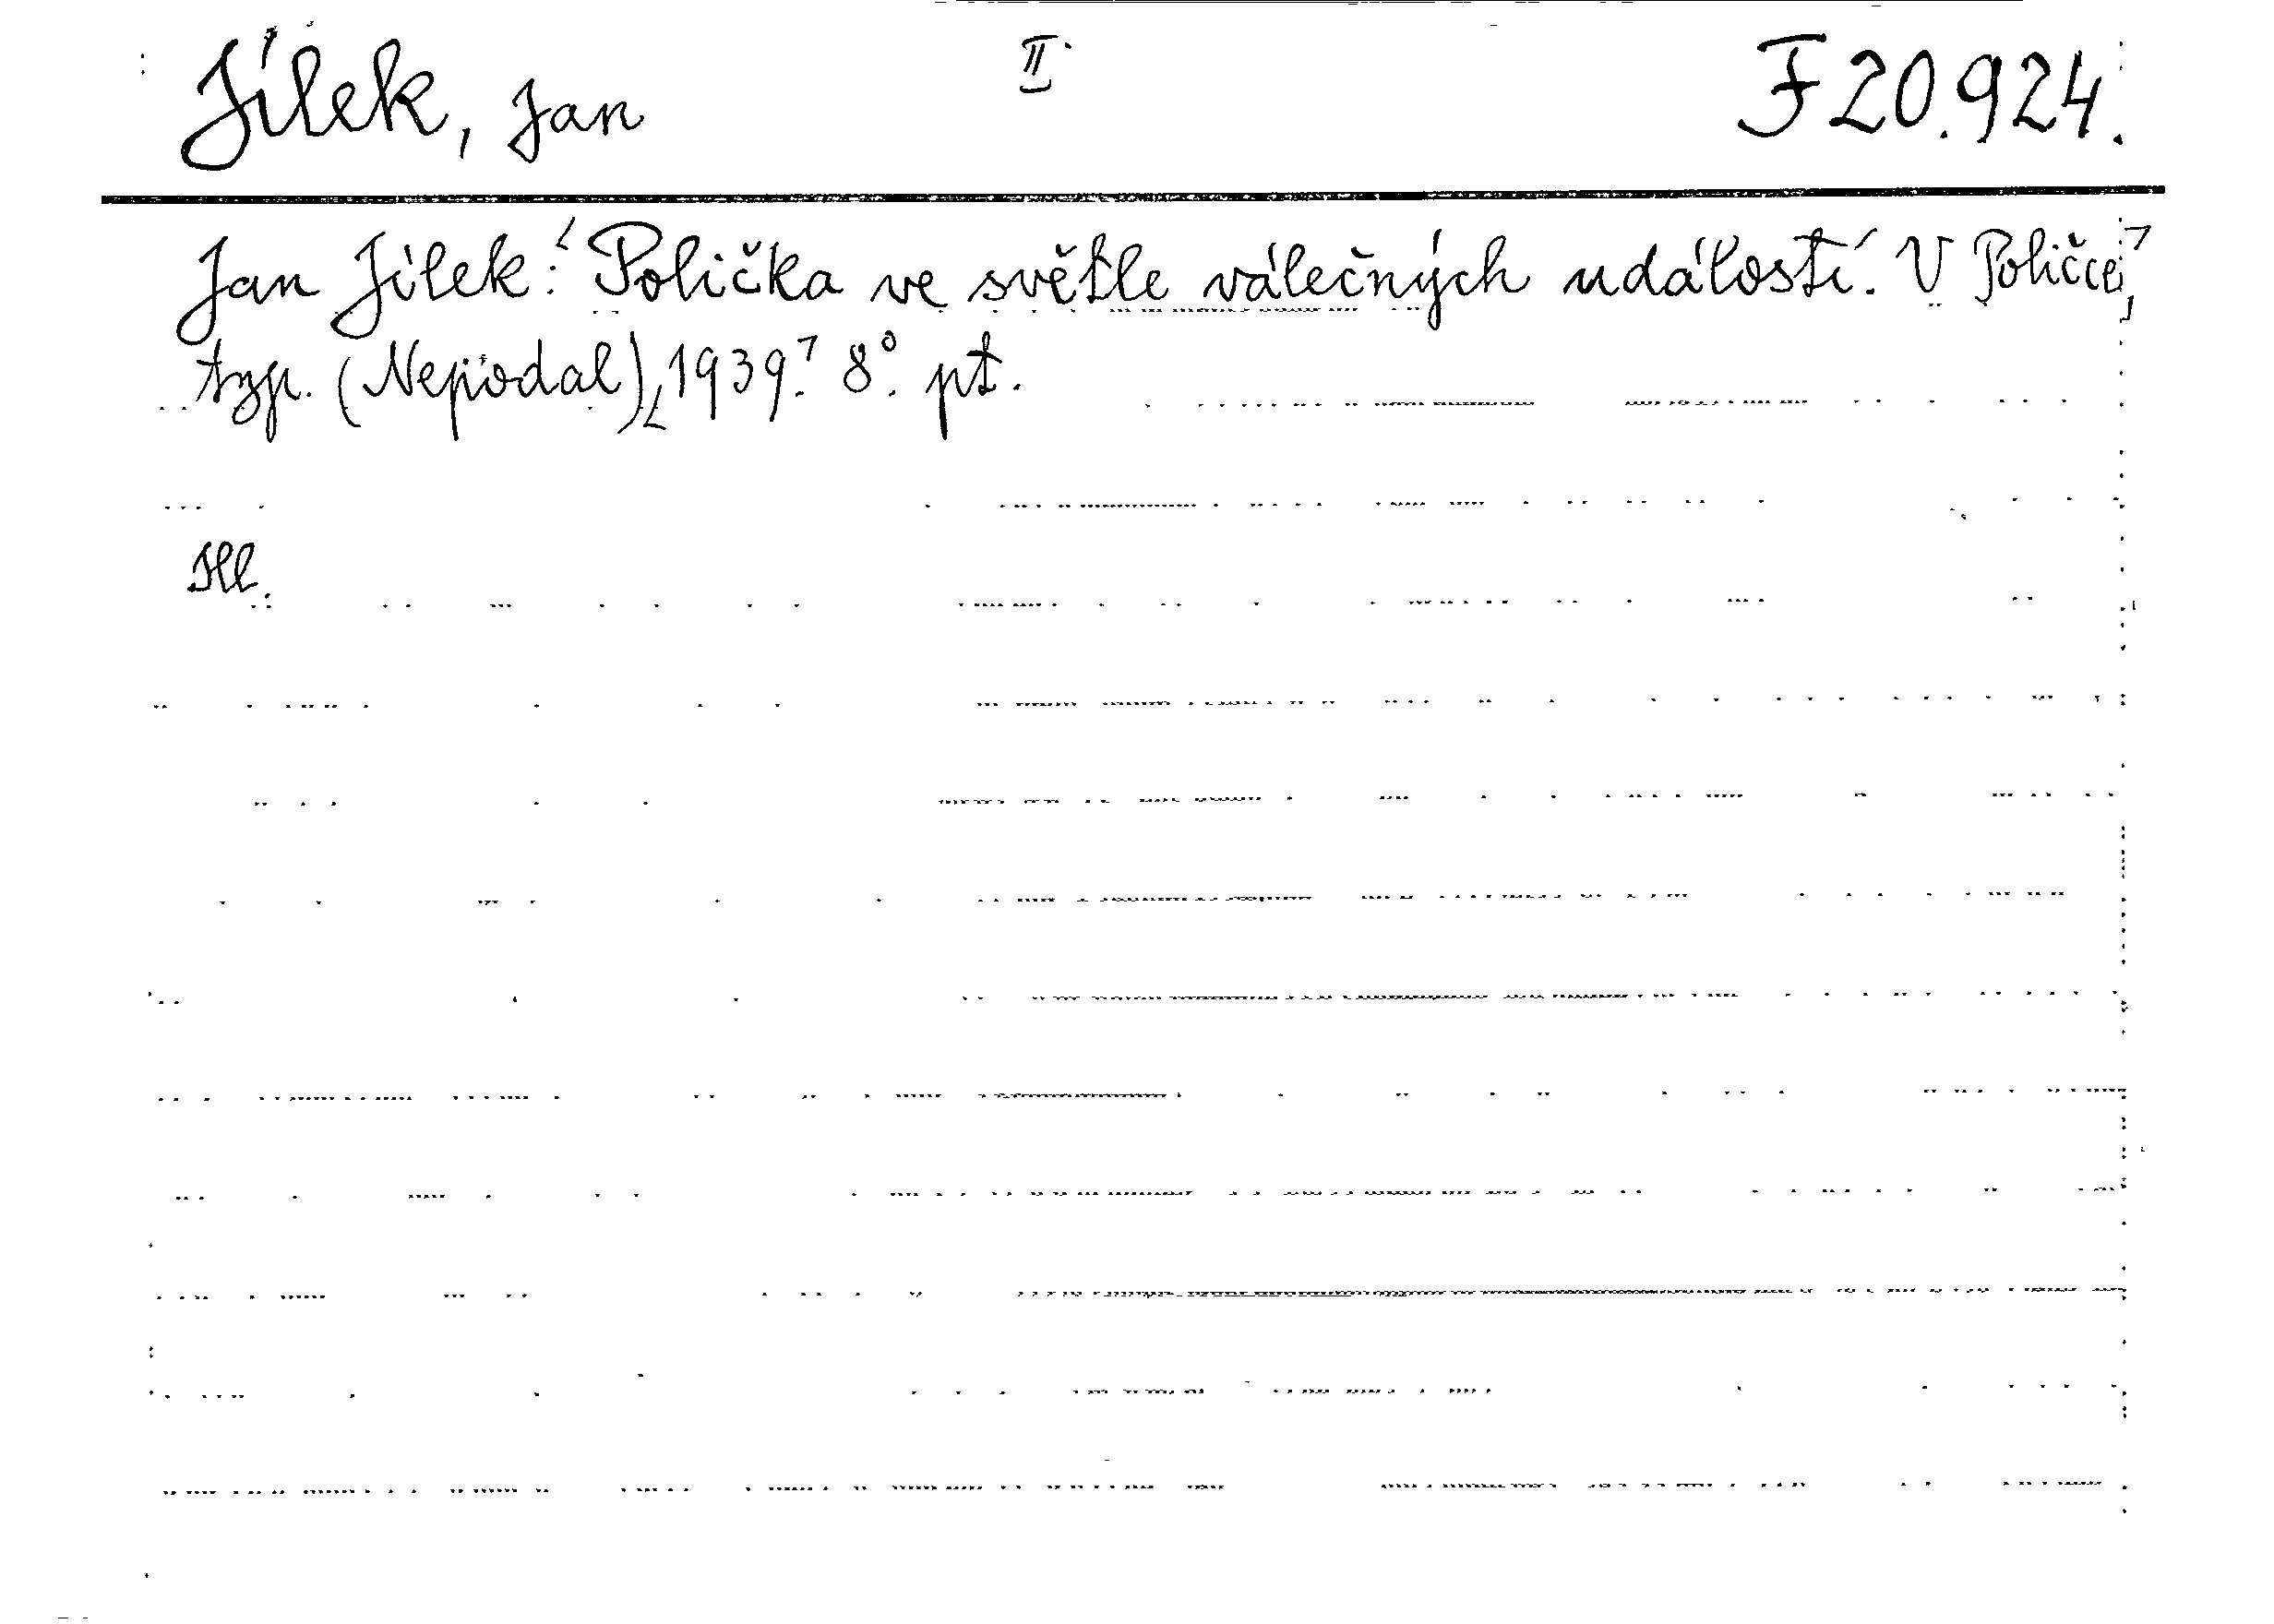 Jílek, Jan II. F 20.924.
Jan Jílek: Polička ve světle válečných událostí. V Poličce,
typ. (Nepiodal), 1939. 8°. pt.
Hl.